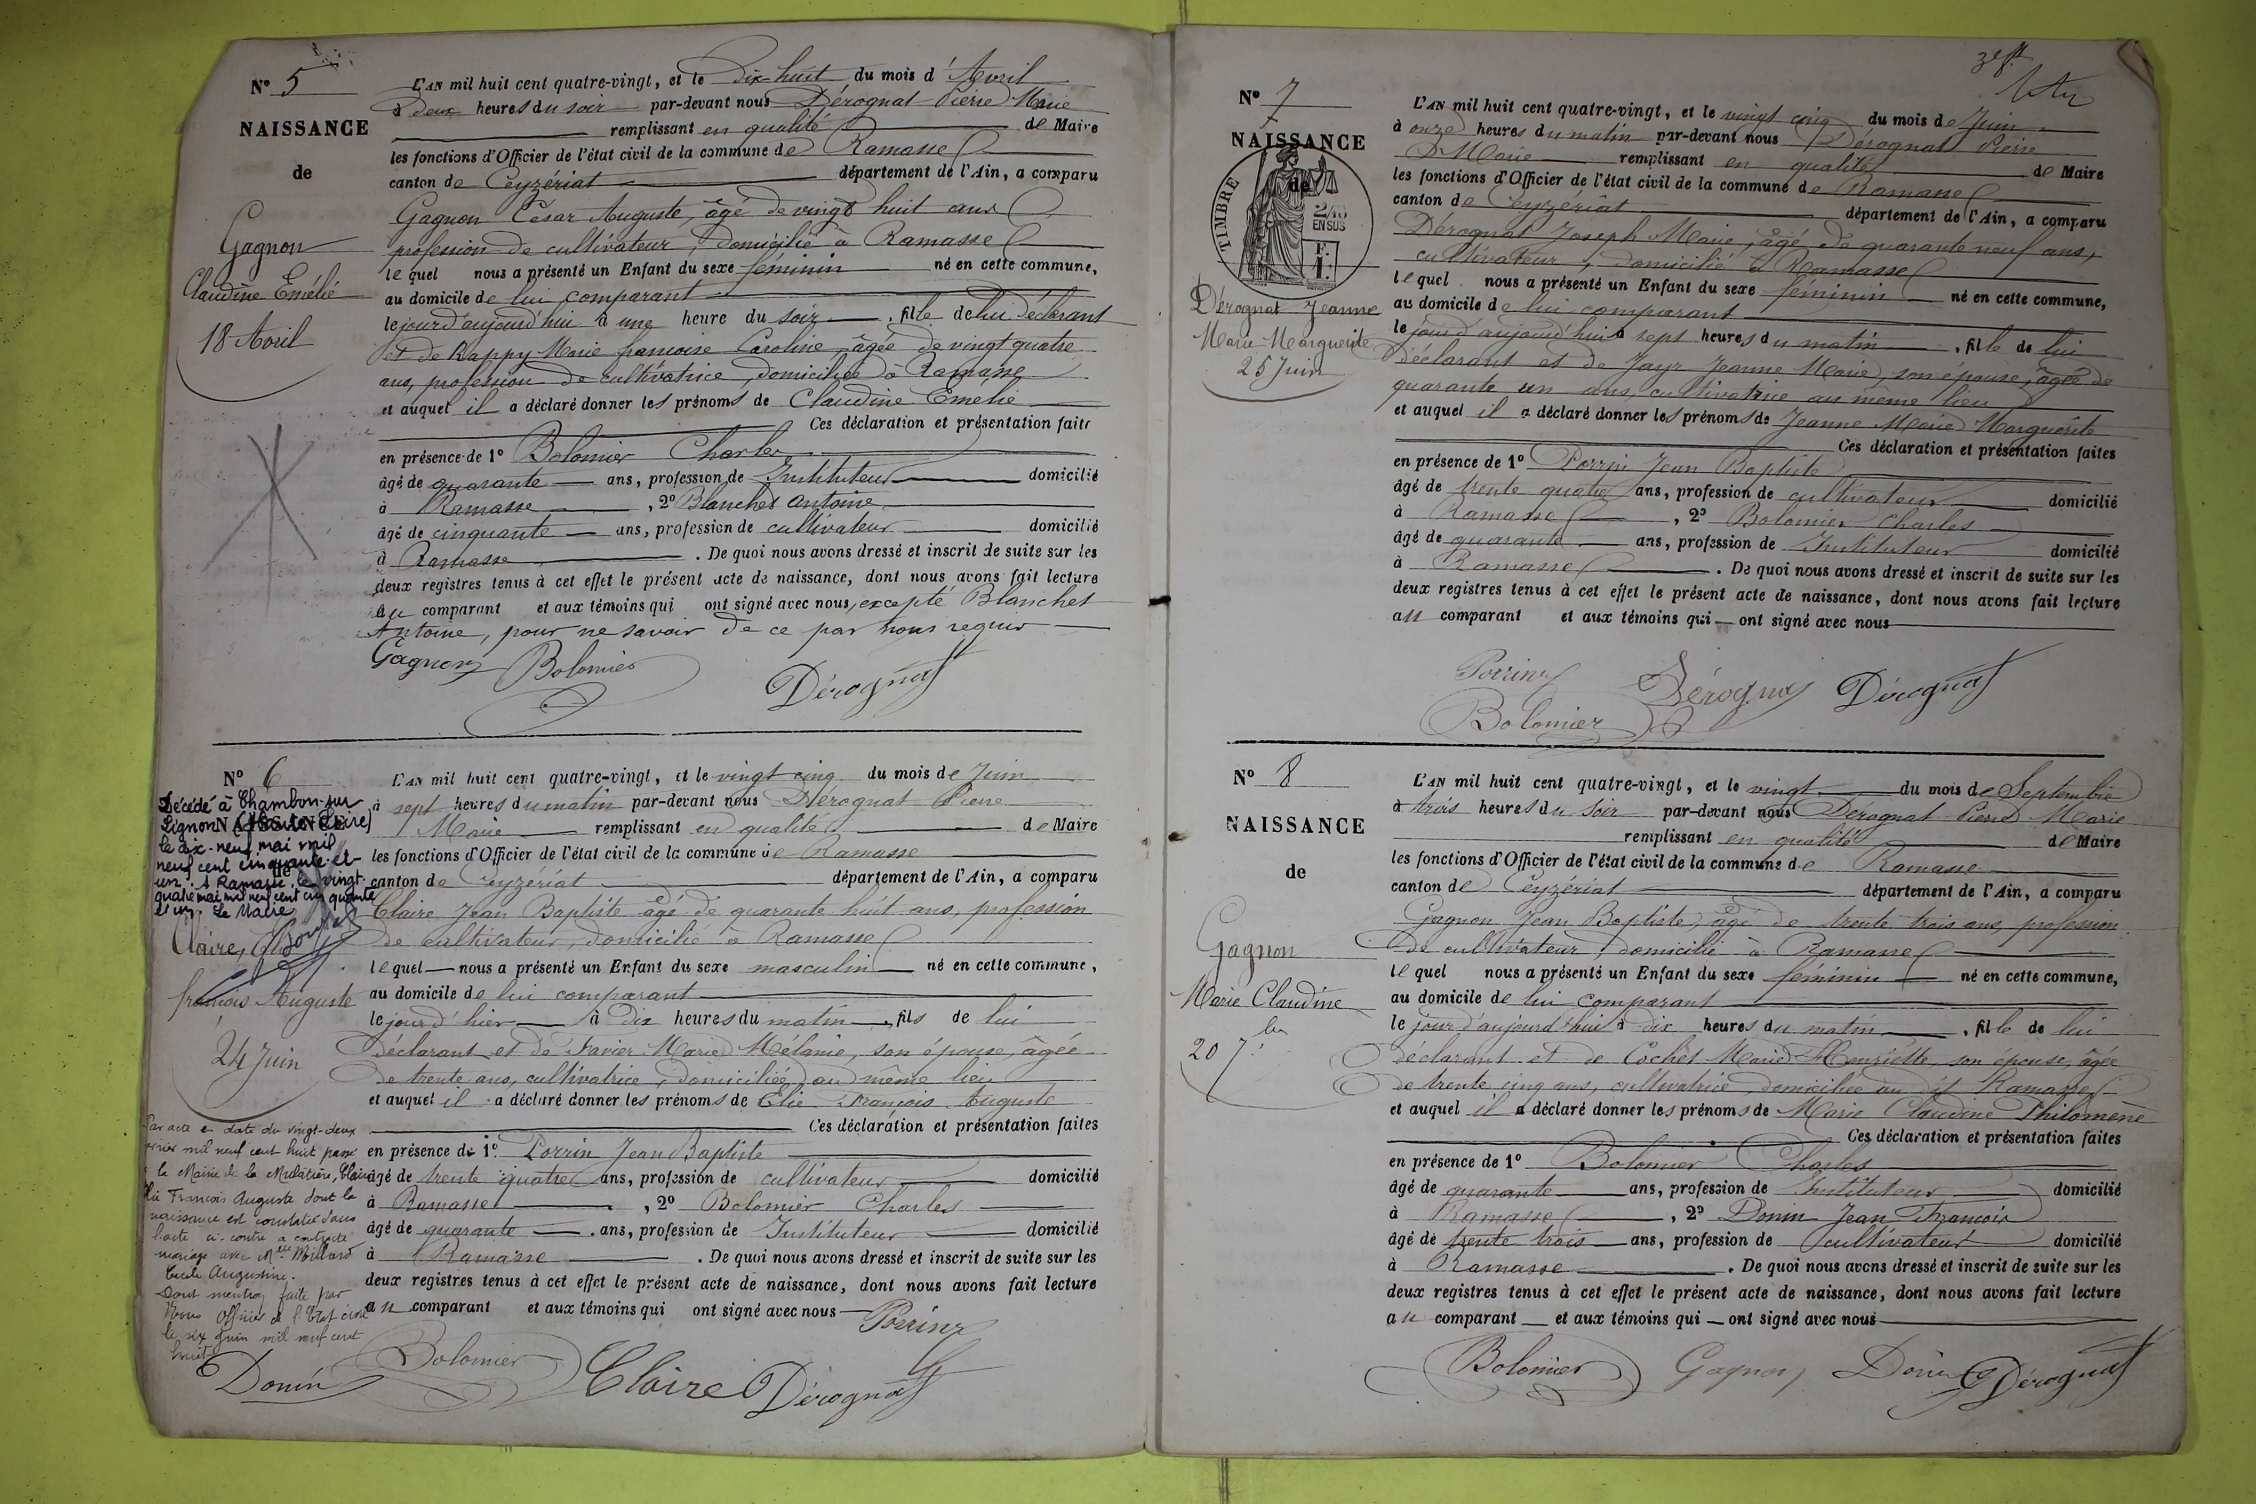 N° 5
NAISSANCE
de
Gagnon
Claudine Emélie
18 Avril
L'AN mil huit cent quatre-vingt, et le Dix huit du mois d'Avril
à deux heures du soir par-devant nous Dérognat Pierre Marie
remplissant en qualité de Maire
les fonctions d'Officier de l'état civil de la commune de Ramasse
canton de Ceyzériat département de l'Ain, a comparu
Gagnon César Auguste, âgé de vingt huit ans
profession de cultivateur, domicilié à Ramasse
lequel nous a présenté un Enfant du sexe féminin né en cette commune,
au domicile de lui comparant
le jour d'aujourd'hui à une heure du soir, fille de lui déclarant
et de Rappy Marie françoise Caroline, âgée de vingt quatre
ans, profession de cultivatrice, domiciliée à Ramasse
et auquel il a déclaré donner les prénoms de Claudine Emélie
Ces déclaration et présentation faites
en présence de 1° Bolomier Charles
âgé de quarante ans, profession de Instituteur domicilié
à Ramasse, 2° Blanchet Antoine
âgé de cinquante ans, profession de cultivateur domicilié
à Ramasse. De quoi nous avons dressé et inscrit de suite sur les
deux registres tenus à cet effet le présent acte de naissance, dont nous avons fait lecture
au comparant et aux témoins qui ont signé avec nous, excepté Blanchet
Antoine, pour ne savoir de ce par nous requis
Gagnon Bolomier Dérognat
N° 6
NAISSANCE
de
Décédé à Chambon-sur
Lignon (Haute Loire)
le dix-neuf mai mil
neuf cent cinquante-et-
un. A Ramasse, le vingt-
quatre mai mil neuf cent cinquante
et un. Le Maire
Claire,
françois Auguste
24 Juin
Par acte en date du vingt-deux
mil neuf cent huit passé
à la Mairie de la Mulatière, Claire
Elie François Auguste dont la
naissance est constatée dans
l'acte ci-contre a contracté
mariage avec Melle Millard
Cécile Augustine.
Dont mention faite par
Nous Officier de l'Etat civil
le six Juin mil neuf cent
huit
L'AN mil huit cent quatre-vingt, et le vingt cinq du mois de Juin
à sept heures du matin par-devant nous Dérognat Pierre
Marie remplissant en qualité de Maire
les fonctions d'Officier de l'état civil de la commune de Ramasse
canton de Ceyzériat département de l'Ain, a comparu
Claire Jean Baptiste âgé de quarante huit ans, profession
de cultivateur, domicilié à Ramasse
lequel nous a présenté un Enfant du sexe masculin né en cette commune,
au domicile de lui comparant
le jour d'hier à dix heures du matin, fils de lui
déclarant et de Favier Marie Mélanie, son épouse, âgée
de trente ans, cultivatrice, domiciliée au même lieu
et auquel il a déclaré donner les prénoms de Elie François Auguste
Ces déclaration et présentation faites
en présence de 1° Porrin Jean Baptiste
âgé de trente quatre ans, profession de cultivateur domicilié
à Ramasse, 2° Bolomier Charles
âgé de quarante ans, profession de Instituteur domicilié
à Ramasse. De quoi nous avons dressé et inscrit de suite sur les
deux registres tenus à cet effet le présent acte de naissance, dont nous avons fait lecture
au comparant et aux témoins qui ont signé avec nous
Porrin
Donin Bolomier Claire Dérognat
N° 7
NAISSANCE
de
TIMBRE
2/10
EN SUS
Dérognat Jeanne
Marie Marguerite
25 Juin
L'AN mil huit cent quatre-vingt, et le vingt cinq du mois de Juin
à onze heures du matin par-devant nous Dérognat Pierre
Marie remplissant en qualité de Maire
les fonctions d'Officier de l'état civil de la commune de Ramasse
canton de Ceyzériat département de l'Ain, a comparu
Dérognat Joseph Marie, âgé de quarante neuf ans,
cultivateur, domicilié à Ramasse
lequel nous a présenté un Enfant du sexe féminin né en cette commune,
au domicile de lui comparant
le jour d'aujourd'hui à sept heures du matin, fille de lui
déclarant et de Jayr Jeanne Marie, son épouse, âgée de
quarante un ans, cultivatrice au même lieu
et auquel il a déclaré donner les prénoms de Jeanne Marie Marguerite
Ces déclaration et présentation faites
en présence de 1° Porrin Jean Baptiste
âgé de trente quatre ans, profession de cultivateur domicilié
à Ramasse, 2° Bolomier Charles
âgé de quarante ans, profession de Instituteur domicilié
à Ramasse. De quoi nous avons dressé et inscrit de suite sur les
deux registres tenus à cet effet le présent acte de naissance, dont nous avons fait lecture
au comparant et aux témoins qui ont signé avec nous
Porrin Dérognat Dérognat
Bolomier
N° 8
NAISSANCE
de
Gagnon
Marie Claudine
20 7
L'AN mil huit cent quatre-vingt, et le vingt du mois de Septembre
à trois heures du soir par-devant nous Dérognat Pierre Marie
remplissant en qualité de Maire
les fonctions d'Officier de l'état civil de la commune de Ramasse
canton de Ceyzériat département de l'Ain, a comparu
Gagnon Jean Baptiste, âgé de trente trois ans, profession
de cultivateur, domicilié à Ramasse
lequel nous a présenté un Enfant du sexe féminin né en cette commune,
au domicile de lui comparant
le jour d'aujourd'hui à dix heures du matin, fille de lui
déclarant et de Cochet Marie Henriette son épouse, âgée
de trente cinq ans, cultivatrice, domiciliée au dit Ramasse
et auquel il a déclaré donner les prénoms de Marie Claudine Philomène
Ces déclaration et présentation faites
en présence de 1° Bolomier Charles
âgé de quarante ans, profession de Instituteur domicilié
à Ramasse, 2° Donin Jean François
âgé de trente trois ans, profession de cultivateur domicilié
à Ramasse. De quoi nous avons dressé et inscrit de suite sur les
deux registres tenus à cet effet le présent acte de naissance, dont nous avons fait lecture
au comparant et aux témoins qui ont signé avec nous
Bolomier Gagnon Donin Dérognat